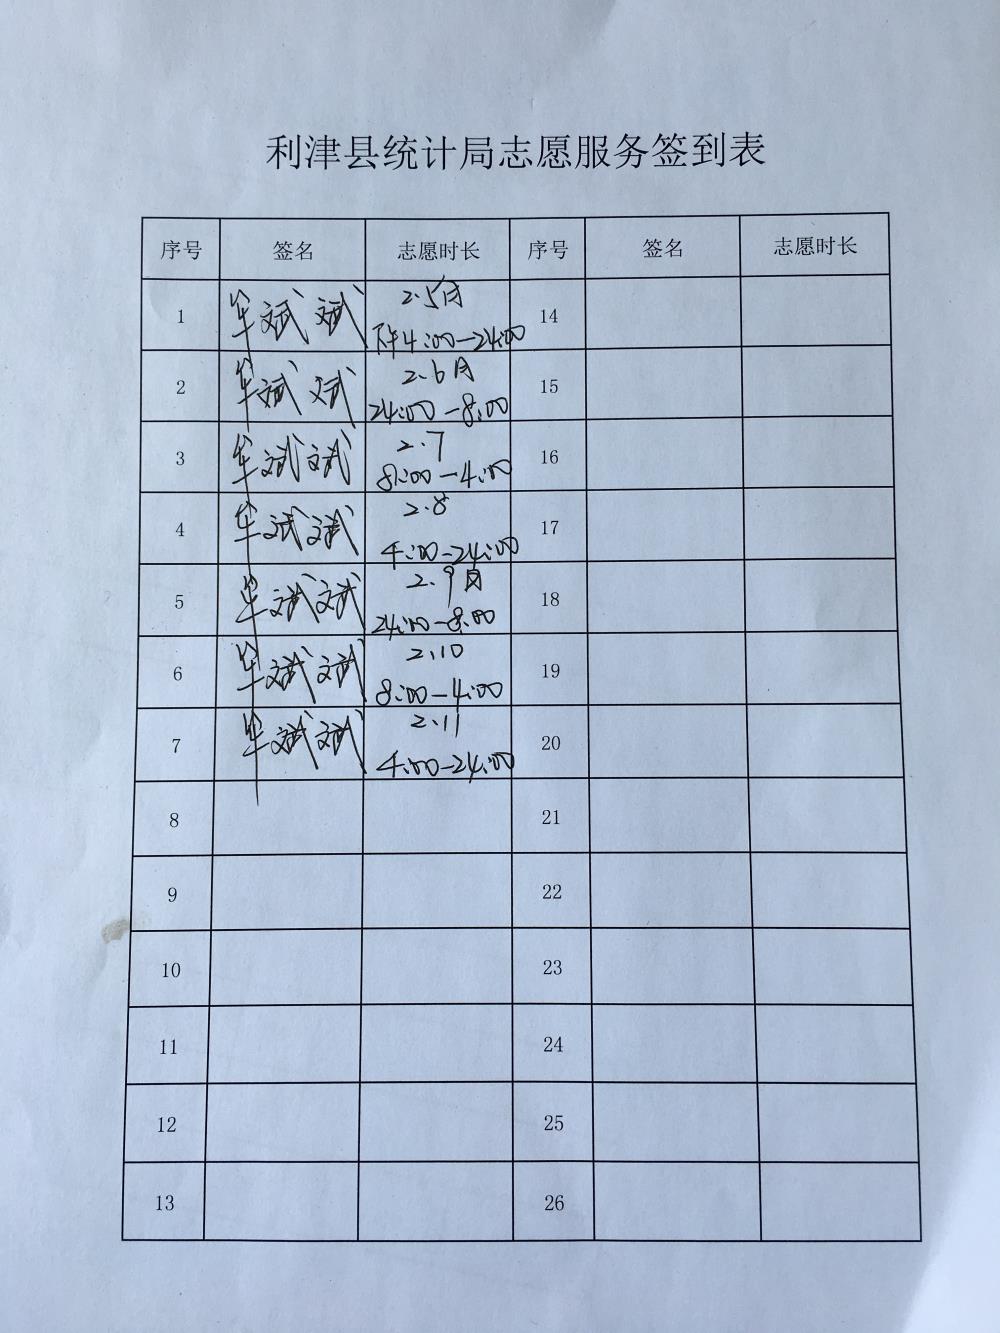 利津县统计局志愿服务签到表
序号 签名 志愿时长 序号 签名 志愿时长
1 斌斌 2.5日 14
下午4:00-24:00
2 斌斌 2.6日 15
24:00-8:00
3 斌斌 2.7 16
8:00-4:00
4 斌斌 2.8 17
4:00-24:00
5 斌斌 2.9日 18
24:00-8:00
6 斌斌 2.10 19
8:00-4:00
7 斌斌 2.11 20
4:00-24:00
8 21
9 22
10 23
11 24
12 25
13 26